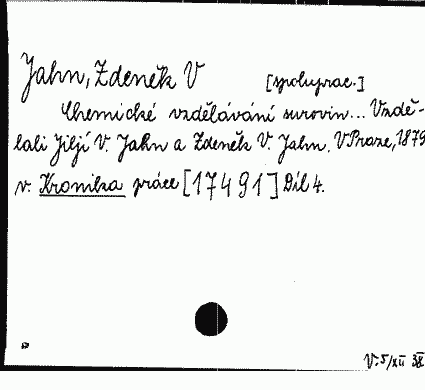 Jahn, Zdeněk V [spoluprac.]
Chemické vzdělávání surovin... Vzdě-
lali Jiljí V. Jahn a Zdeněk V. Jahn. V Praze, 1879
v. Kronika práce [17491] Díl 4.
V. 5/XII 38